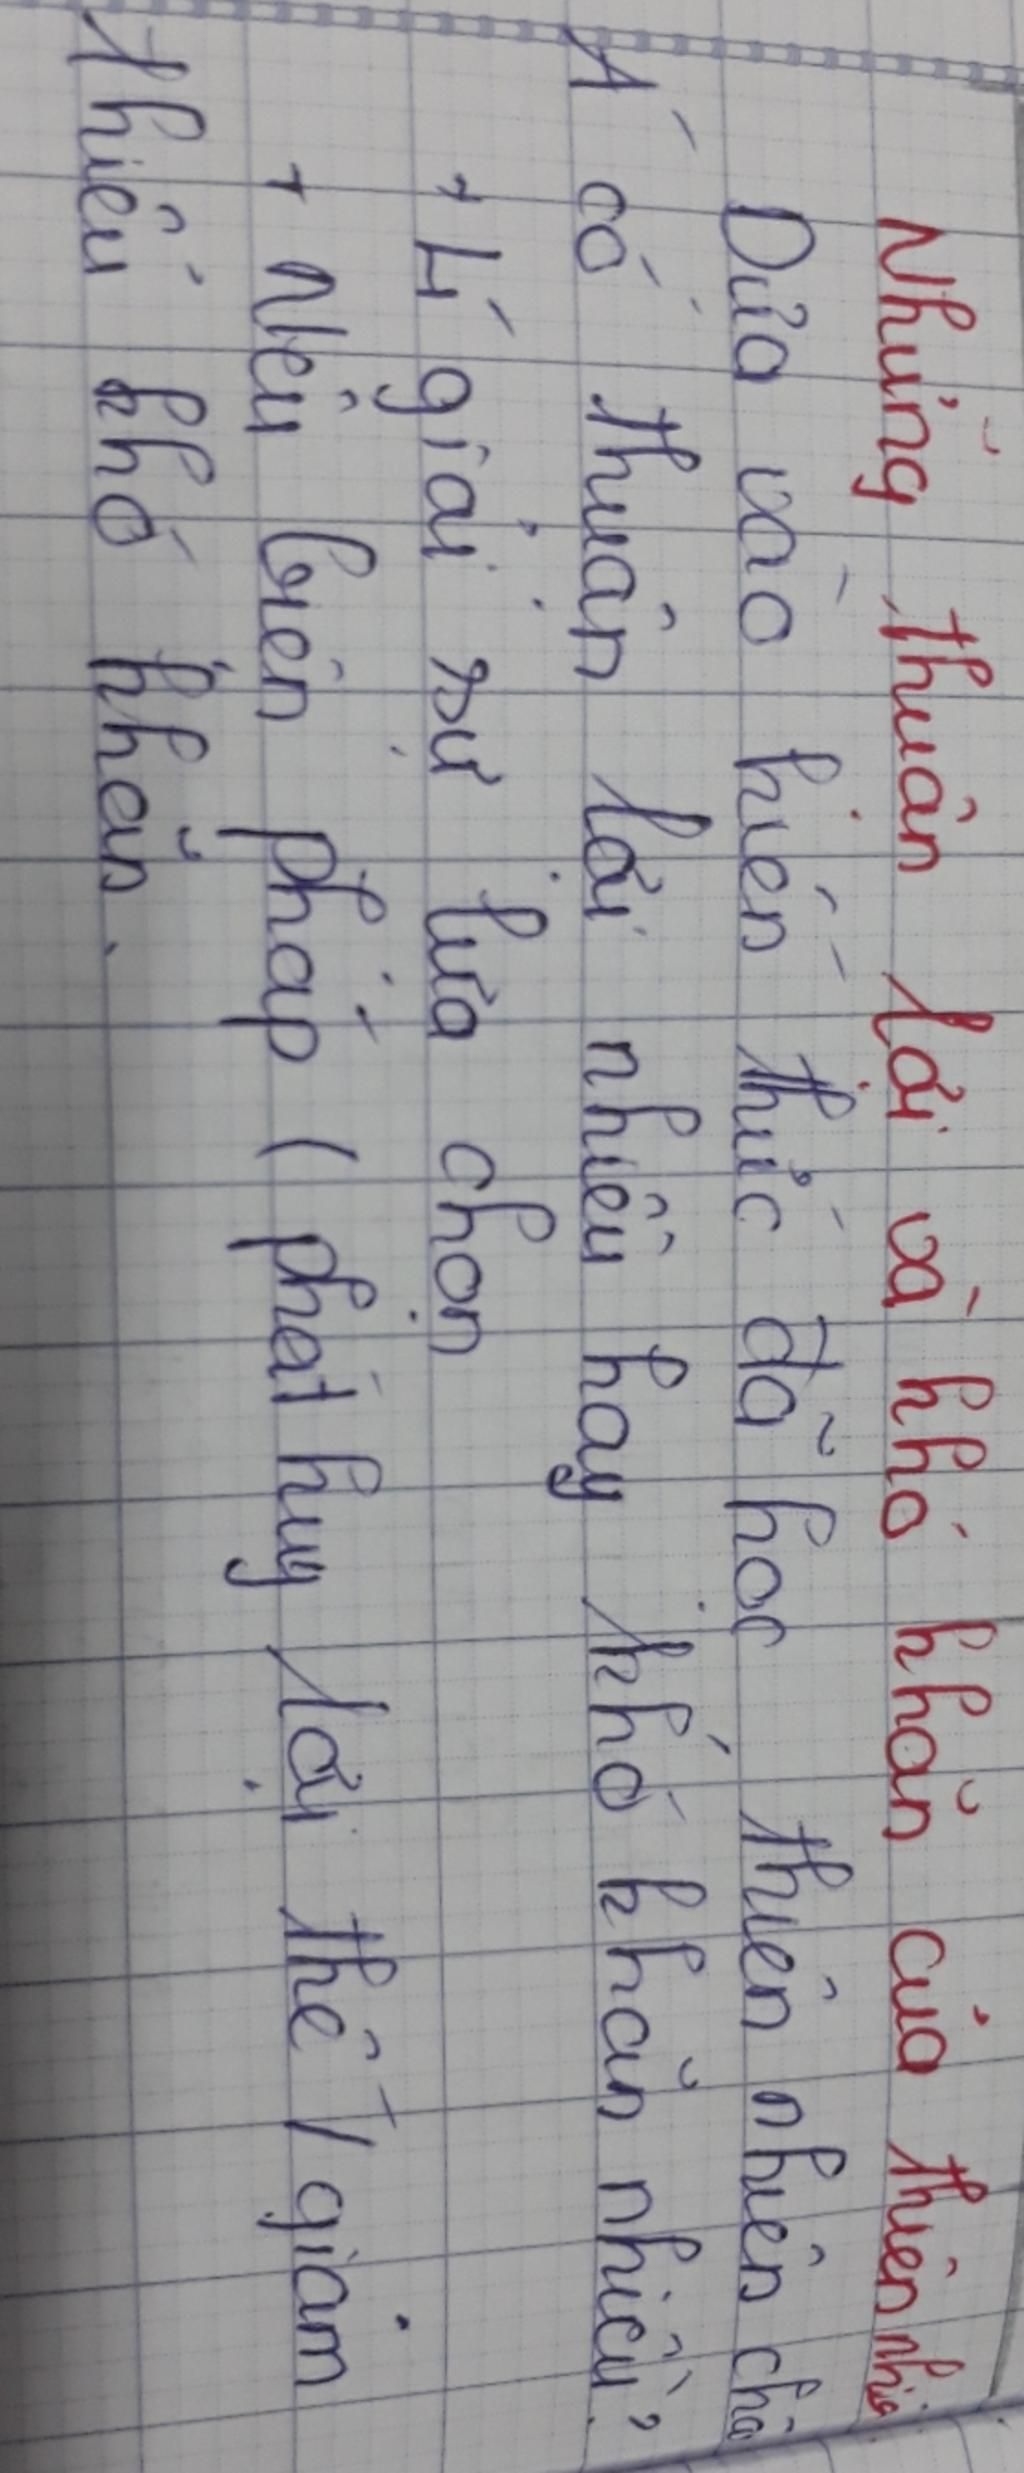 Những thuận lợi và khó khăn của thiên nhiên
Dựa vào kiến thức đã học thiên nhiên châ
Á có thuận lợi nhiều hay khó khăn nhiều?
+ Lí giải sự lựa chọn
+ Nêu biện pháp (phát huy lợi thế / giảm
thiểu khó khăn.